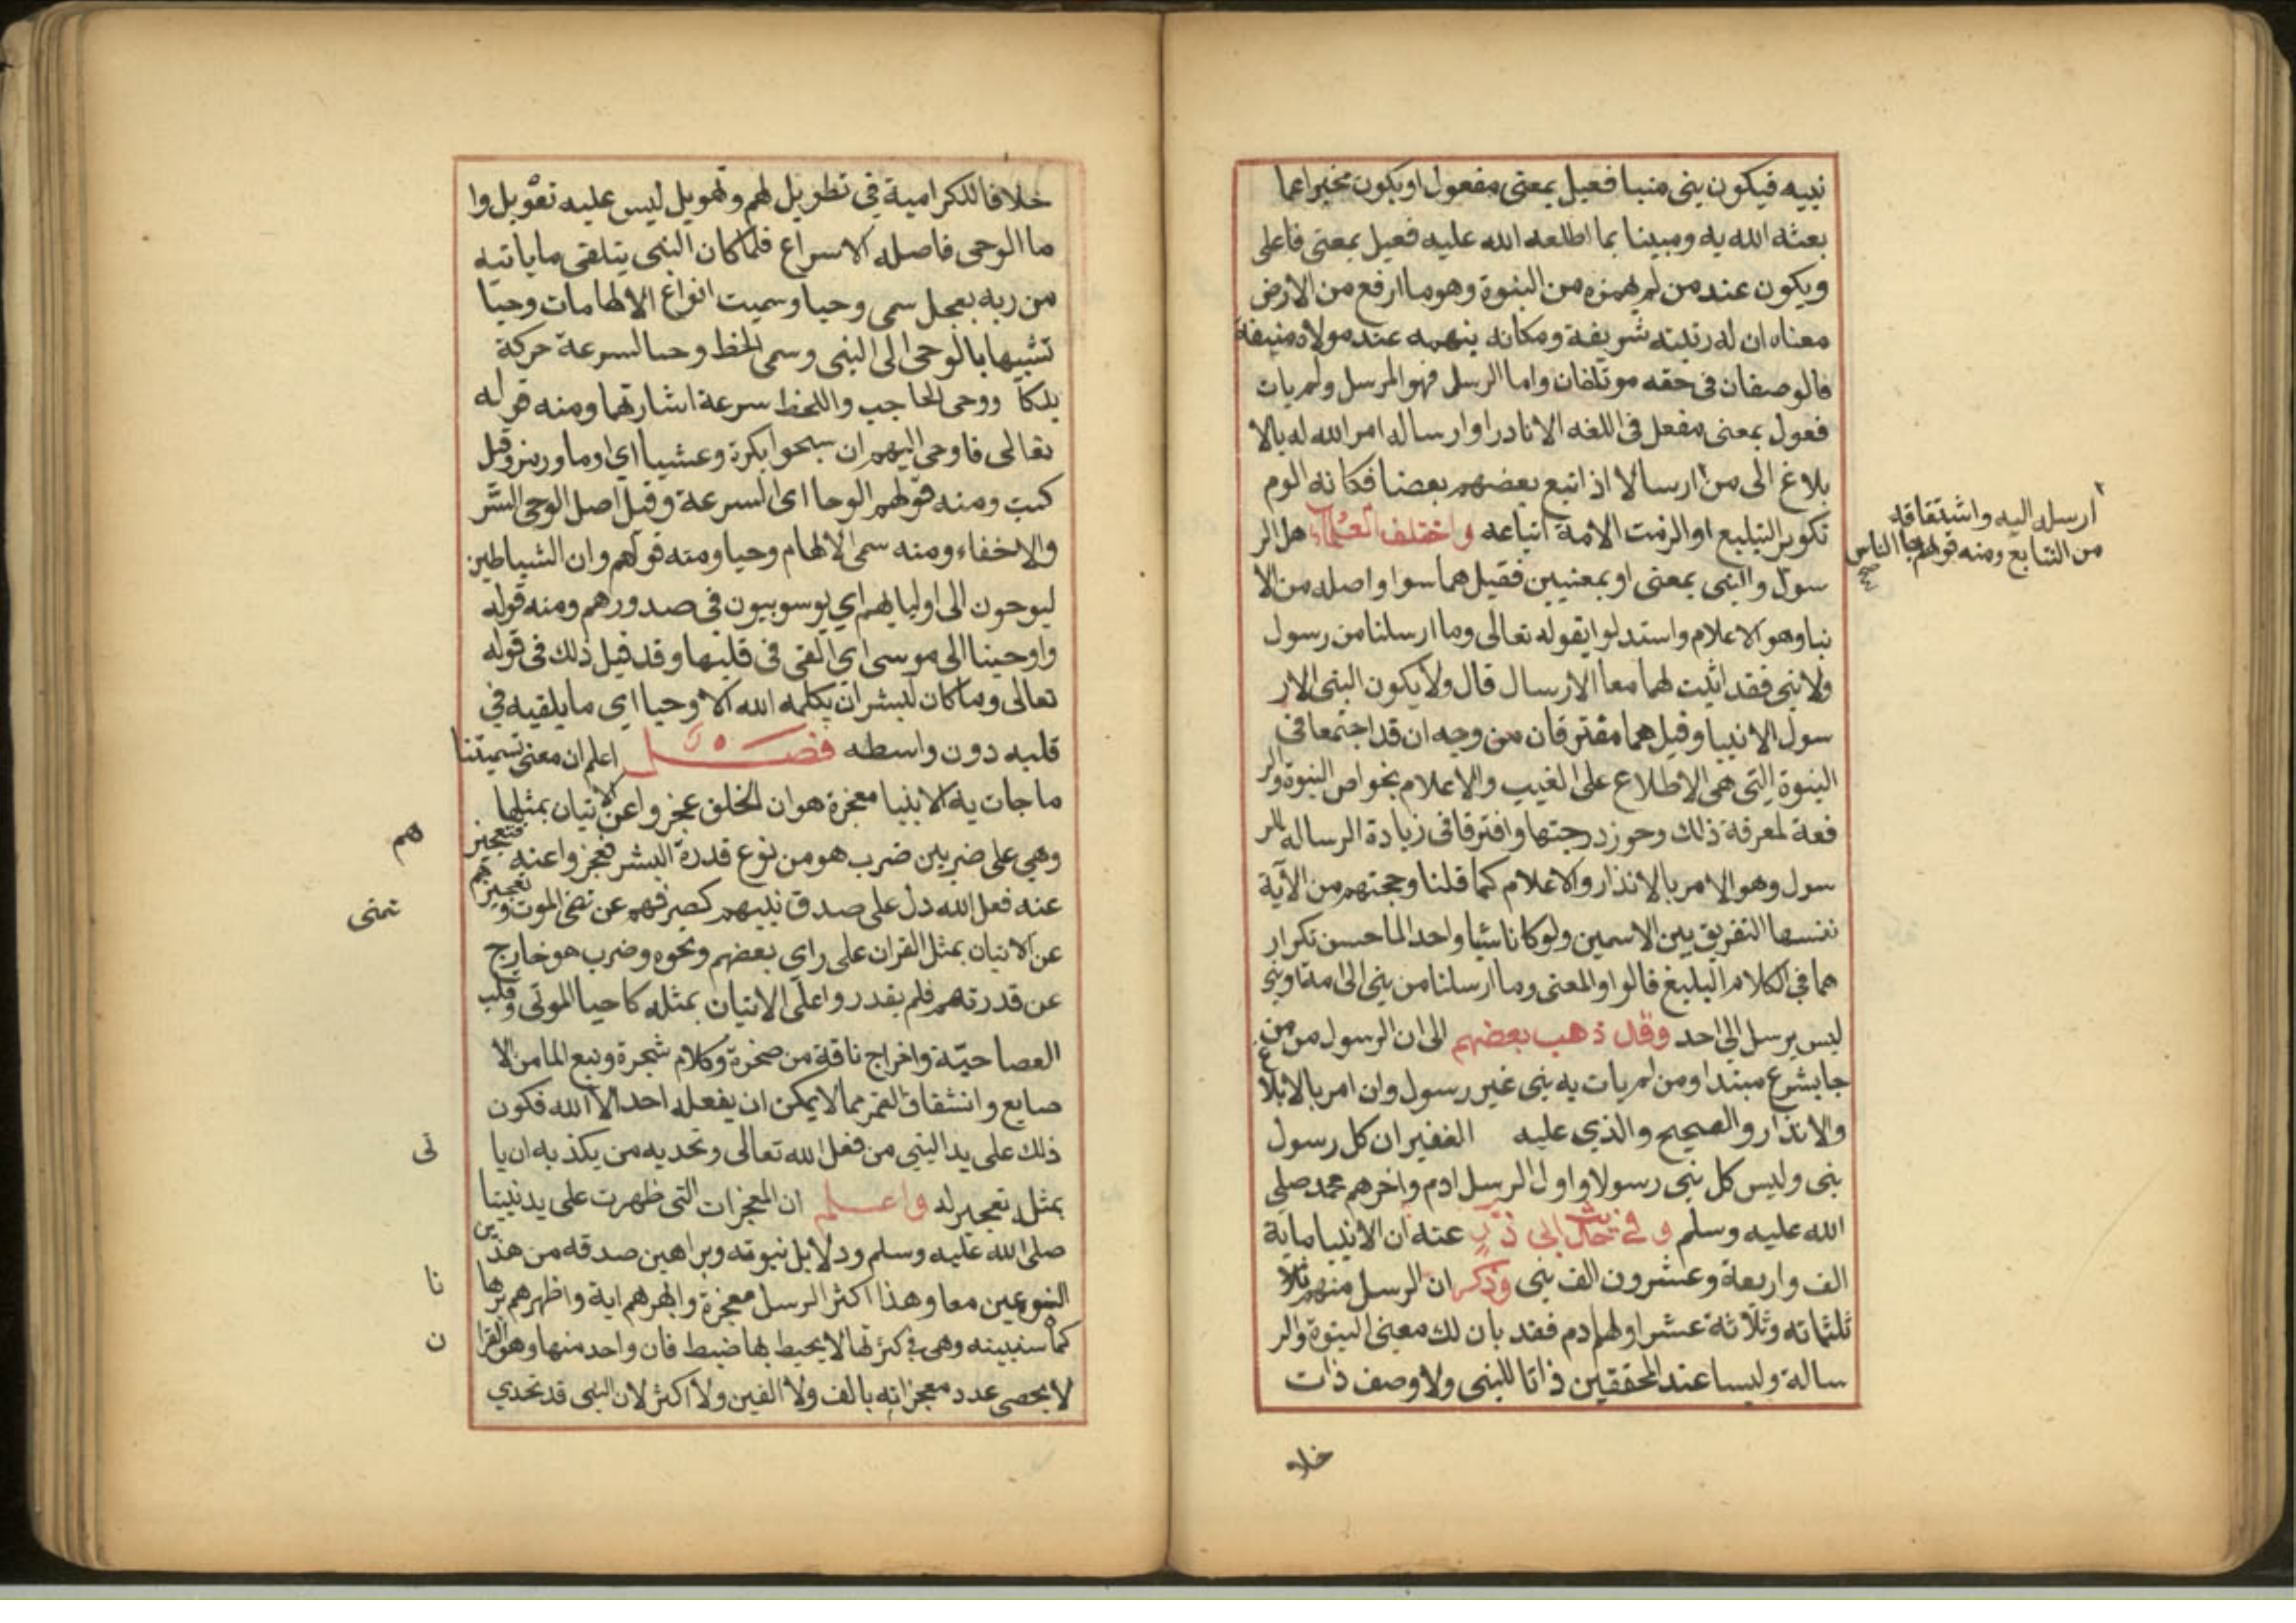 نبيه فيكون نبى منبا فعيل بمعنى مفعول او يكون مخبرا عما
بعثه الله به ومبينا بما اطلعه الله عليه فعيل بمعنى فاعل
ويكون عند من لم يهمزه من النبوة وهو ما ارفع من الارض
معناه ان له رتبته شريفة ومكانه ينهمه عند مولاه منيفة
فالوصفان فى حقه موتلفان واما الرسل فهو المرسل ولم يات
فعول بمعنى مفعل فى اللغه الا نادرا وارساله امر الله له بالا
بلاغ الى من ارسالا اذا تبع بعضهم بعضا فكانه الوم
تكوير التبليغ او الزمت الامة اتباعه واختلف العلماء هل الر
سول والنبى بمعنى او بمعنيين فقيل هما سوا واصله من الا
نبا وهو الاعلام واستدلوا بقوله تعالى وما ارسلنا من رسول
ولا نبى فقد اثبت لهما معا الارسال قال ولا يكون النبى الا ر
سول الانبيا وقيل هما مفترقان من وجه ان قد اجتمعا فى
النبوة التى هى الاطلاع على الغيب والاعلام بخواص النبوة والر
فعة لمعرفة ذلك وحوز درجتها وافترقا فى زيادة الرساله للر
سول وهو الامر بالانذار والاعلام كما قلنا وحجتهم من الآية
نفسها التفريق بين الاسمين ولو كانا شيا واحدا لما حسن تكرار
هما فى الكلام البليغ قالوا والمعنى وما ارسلنا من نبى الى امة او نبى
ليس يرسل الى احد وقد ذهب بعضهم الى ان الرسول من من
جا بشرع مبتدا ومن لم يات به نبى غير رسول وان امر بالابلاغ
والانذار والصحيح والذي عليه الغفير ان كل رسول
نبى وليس كل نبى رسولا واول الرسل ادم واخرهم محمد صلى
الله عليه وسلم وفى حديث ابى ذر عنه ان الانبيا ماية
الف واربعة وعشرون الف نبى وذكر ان الرسل منهم ثلا
ثلثمائه وثلاثة عشر اولهم ادم فقد بان لك معنى النبوة والر
سالة وليسا عند المحققين ذاتا للنبى ولا وصف ذات
خلا
ارسله اليه واشتقاقه
من التتابع ومنه قولهم جا الناس
صح
خلافا للكرامية فى تطويل لهم وتهويل ليس عليه تعويل وا
ما الوحى فاصله الاسراع فلما كان النبى يتلقى ما ياتيه
من ربه بعجل سمى وحيا وسميت انواع الالهامات وحيا
تشبيها بالوحى الى النبى وسمى الخط وحيا لسرعة حركة
يد كا ووحى الحاجب واللحظ سرعة اشارتهما ومنه قوله
تعالى فاوحى اليهم ان سبحوا بكرة وعشيا اي اوما ورمز وقيل
كتب ومنه قولهم الوحا اى السرعة وقيل اصل الوحى السر
والاخفاء ومنه سمى الالهام وحيا ومنه قولهم وان الشياطين
ليوحون الى اوليايهم اي يوسوسون فى صدورهم ومنه قوله
واوحينا الى موسى اي القى فى قلبها وقد قيل ذلك فى قوله
تعالى وما كان لبشر ان يكلمه الله الا وحيا اى ما يلقيه فى
قلبه دون واسطه فصل اعلم ان معنى تسميتنا
ما جات به الانبيا معجزة هو ان الخلق عجزوا عن الاتيان بمثلها
وهى على ضربين ضرب هو من نوع قدرة البشر فعجزوا عنه فتعجيز
عنه فعل الله دل على صدق نبيهم كصرفهم عن تمنى الموت وتعجيزهم
عن الاتيان بمثل القران على راي بعضهم ونحوه وضرب هو خارج
عن قدرتهم فلم يقدروا على الاتيان بمثله كاحيا الموتى وقلب
العصا حيّة واخراج ناقة من صخرة وكلام شجرة ونبع الما من الا
صابع وانشقاق القمر مما لا يمكن ان يفعله احد الا الله فكون
ذلك على يد النبى من فعل الله تعالى وتحديه من يكذبه ان يا
بمثله تعجيز له واعلم ان المعجزات التى ظهرت على يد نبينا
صلى الله عليه وسلم ودلايل نبوته وبراهين صدقه من هذين
النوعين معا وهذا اكثر الرسل معجزة وابهرهم اية واظهرهم برها
كما سنبينه وهى فى كثرتها لا يحيط بها ضبط فان واحد منها وهو القرا
لا يحصى عدد معجزاته بالف ولا الفين ولا اكثر لان النبى قد تحدي
هم
تمنى
تى
نا
ن